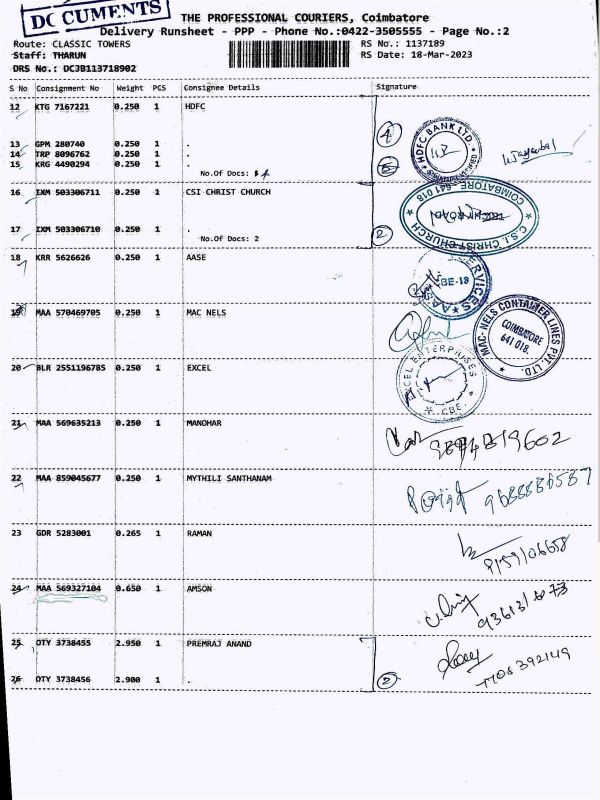 DOCUMENTS
THE PROFESSIONAL COURIERS, Coimbatore
Delivery Runsheet - PPP - Phone No.:0422-3505555 - Page No.:2
Route: CLASSIC TOWERS
RS No.: 1137189
Staff: THARUN
RS Date: 18-Mar-2023
DRS No.: DCJB113718902
S No Consignment No Weight PCS Consignee Details Signature
12 KTG 7167221 0.250 1 HDFC
13 GPM 280740 0.250 1 .
14 TRP 8096762 0.250 1 .
15 KRG 4490294 0.250 1 .
No.Of Docs:
HDFC BANK LTD
16 IXM 503306711 0.250 1 CSI CHRIST CHURCH
17 IXM 503306710 0.250 1 .
No.Of Docs: 2
2
C.S.I. CHRIST CHURCH
COIMBATORE - 641 018
18 KRR 5626626 0.250 1 AASE
CBE-18
SERVICES
19 MAA 570469705 0.250 1 MAC NELS
MAC-NELS CONTAINER LINES PVT. LTD.
COIMBATORE
641 018.
20 BLR 2551196785 0.250 1 EXCEL
EXCEL ENTERPRISES
CBE.
21 MAA 569635213 0.250 1 MANOHAR
22 MAA 859045677 0.250 1 MYTHILI SANTHANAM
23 GDR 5283001 0.265 1 RAMAN
24 MAA 569327104 0.650 1 AMSON
25 OTY 3738455 2.950 1 PREMRAJ ANAND
26 OTY 3738456 2.900 1 .
2